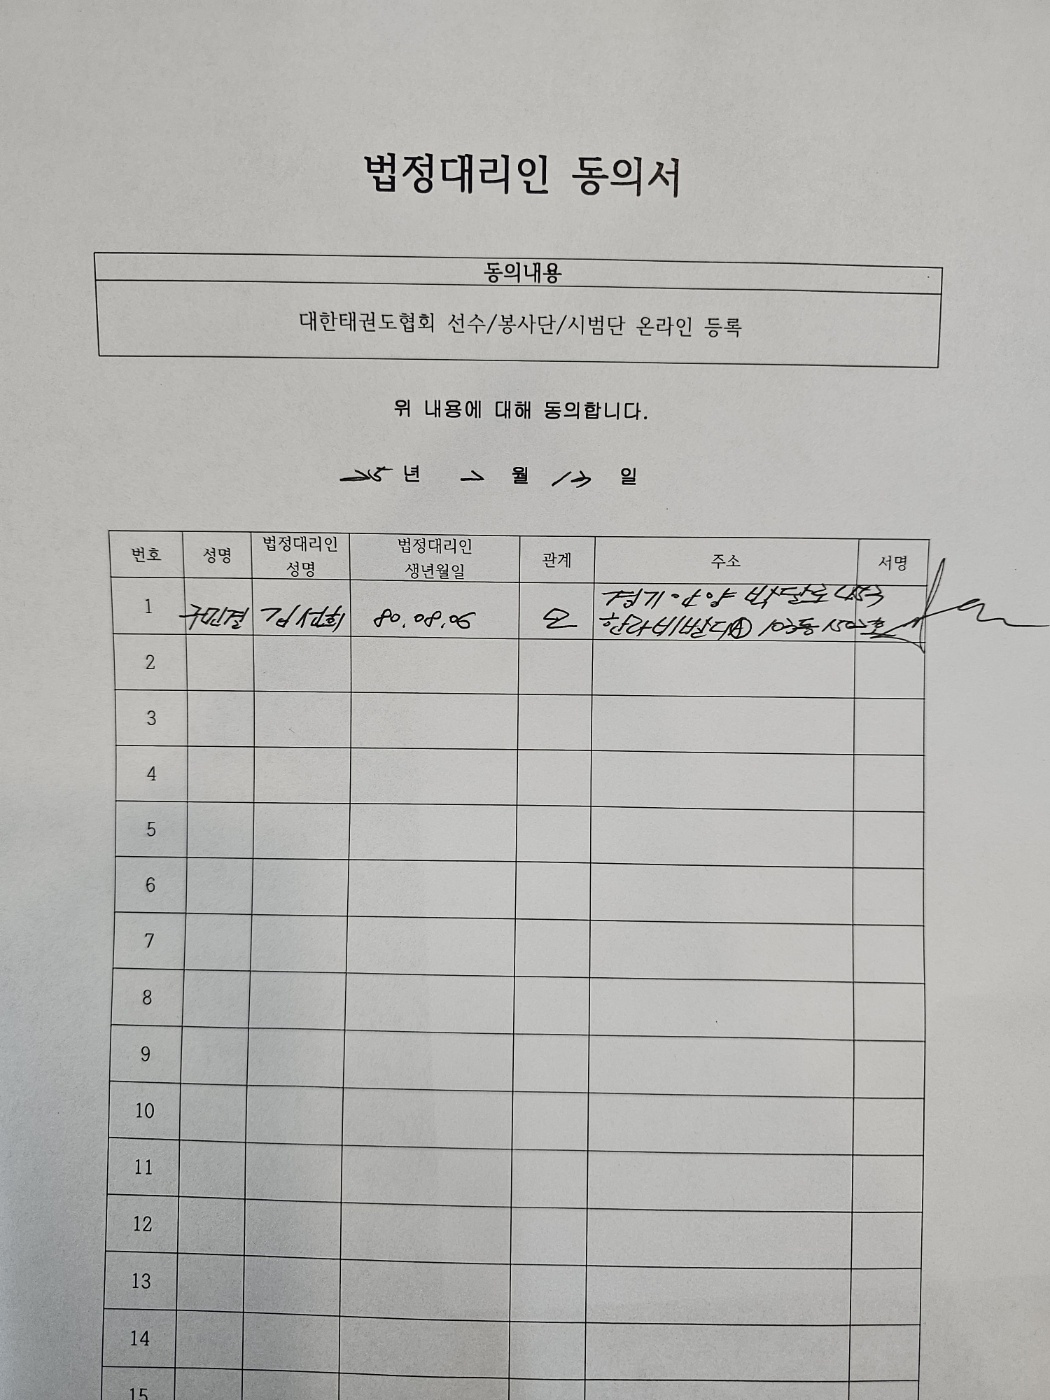 법정대리인 동의서
동의내용
대한태권도협회 선수/봉사단/시범단 온라인 등록
위 내용에 대해 동의합니다.
25 년 2 월 13 일
번호 성명 법정대리인 성명 법정대리인 생년월일 관계 주소 서명
1 구민결 김선희 80.08.06 모 경기 안양 박달로
한라비발디 103동 1502호
2
3
4
5
6
7
8
9
10
11
12
13
14
15